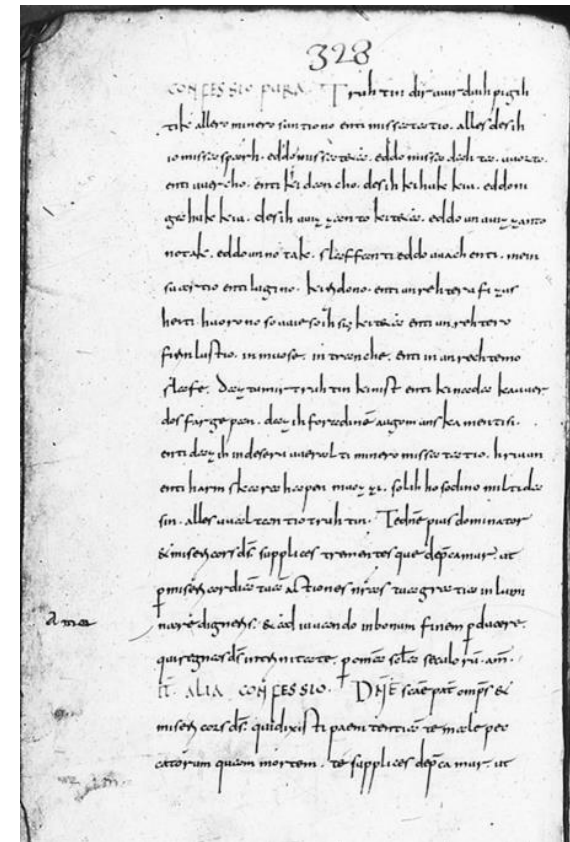 328
CONFESSIO PURA. Truhtin dir uuirdu ih pigih
tik allero minero suntiono enti missatatio. alles des ih
io missasprah. eddo missateta. eddo missadahta. uuorto.
enti uuercho. enti kidancho. des ih kihukkiu. eddo ni
gahukkiu. des ih uuizzanto kiteta. eddo unuuizzanto
notak. eddo unnotak. slaffanti eddo uuachenti. mein
suartio enti lugino. kiridono. enti unrehtera fizus
heiti. huorono so uuie so ih sio kiteta enti unrehtero
firinlustio. in muose. in tranche. enti in unrehtemo
slafe. daz tu mir truhtin kinist enti kinada kauuer
dos fargepan. daz ih fora dinē augom unskamenti si.
enti daz ih in deseru uueralti minero missatatio. hriuun
enti harmskara hapen muozzi. solih ho so dino miltida
sin. alles uualtantio truhtin. Te dnē pius dominator
& misericors ds̄ supplices trementesque dep̄camur. ut
p misericordia tua actiones nr̄as tua gratia inlumi
Amen
nare digneris. & ad uiuendo in bonum finem pducere.
qui regnas ds̄ in trinitate. p omā sclā seculorū. am̄.
IT ALIA CONFESSIO. DN̄E scāe pat omp̄s &
misericors ds̄. qui dixisti paenitentia te male pec
catorum quam mortem. te supplices dep̄camur. ut